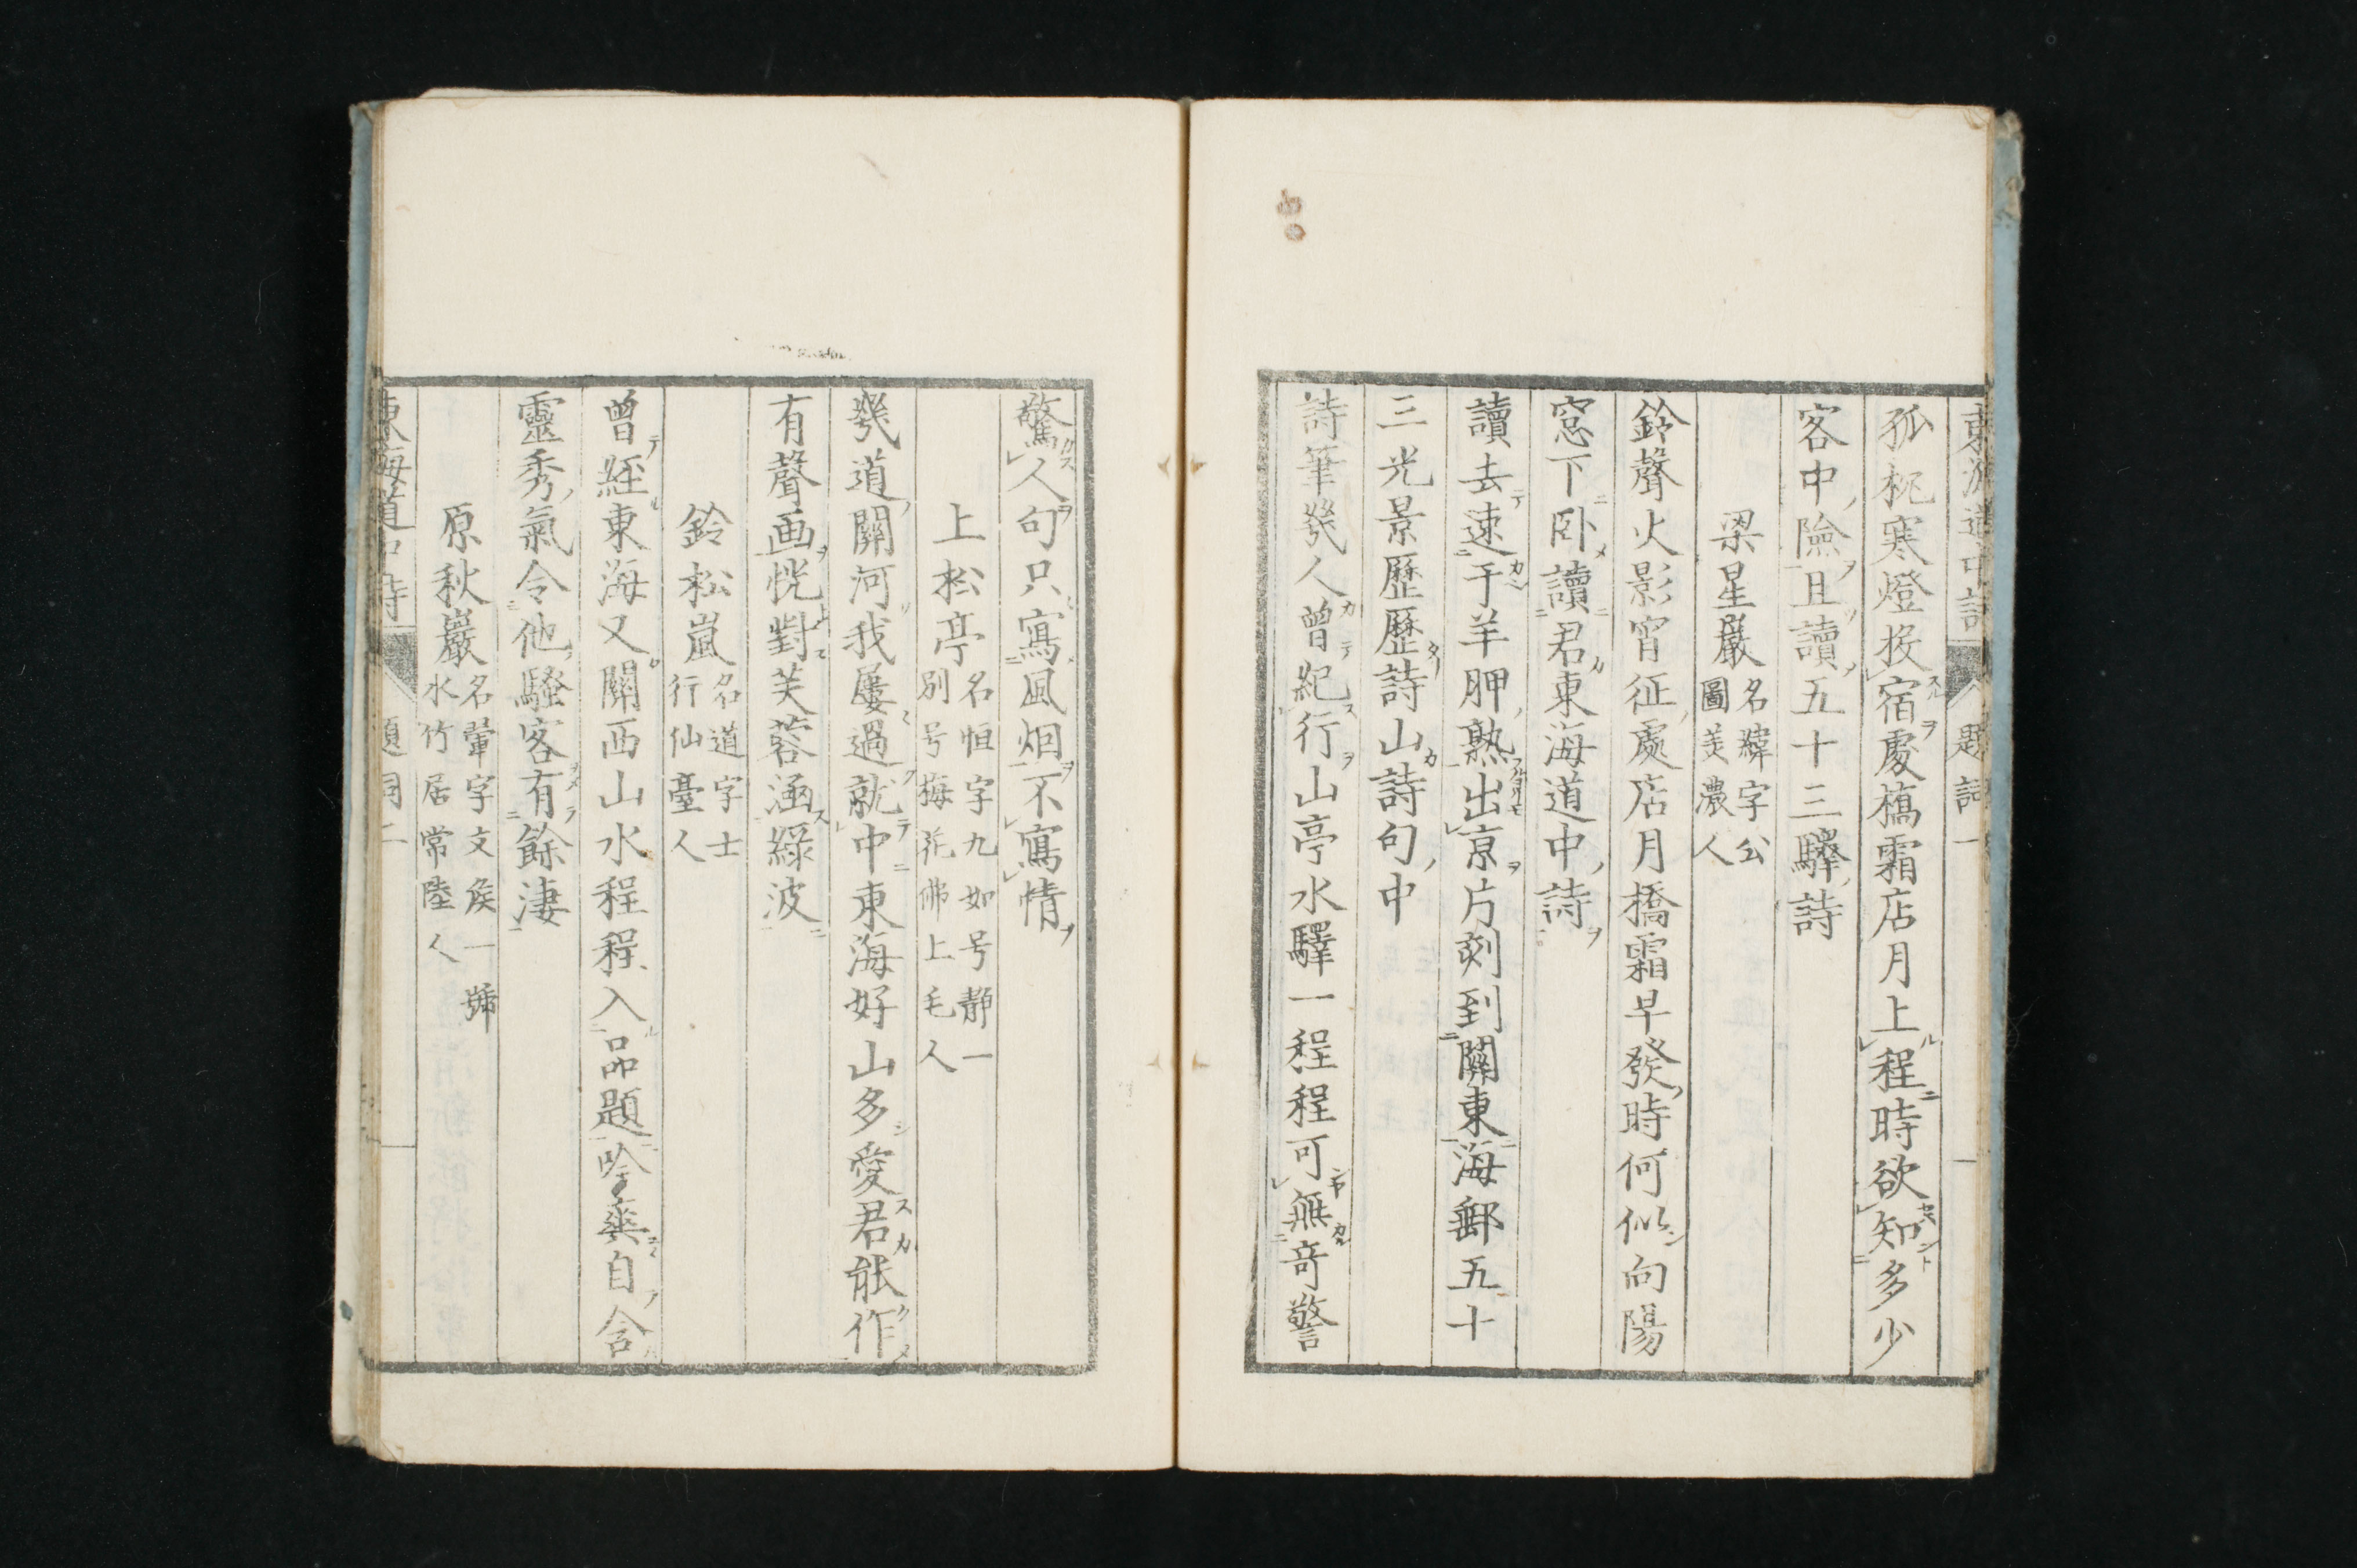 東海道中詩 題詞 一
孤枕寒燈投宿處橋霜店月上程時欲知多少
客中險且讀五十三驛詩
梁星巖 名緯字公圖美濃人
鈴聲火影宵征處店月橋霜早發時何似向陽
窓下卧讀君東海道中詩
讀去速于羊胛熟出京片刻到關東海郵五十
三光景歷歷詩山詩句中
詩筆幾人曾紀行山亭水驛一程程可無奇警
驚人句只寫風烟不寫情
上松亭 名恒字九如号靜一別号梅花佛上毛人
幾道關河我屢過就中東海好山多愛君能作
有聲画恍對芙蓉涵綠波
鈴松嵐 名道字士行仙臺人
曾經東海又關西山水程程入品題吟䒳自含
靈秀氣令他騷客有餘凄
原秋巖 名翬字文矦一號水竹居常陸人
東海道中詩 題詞 二